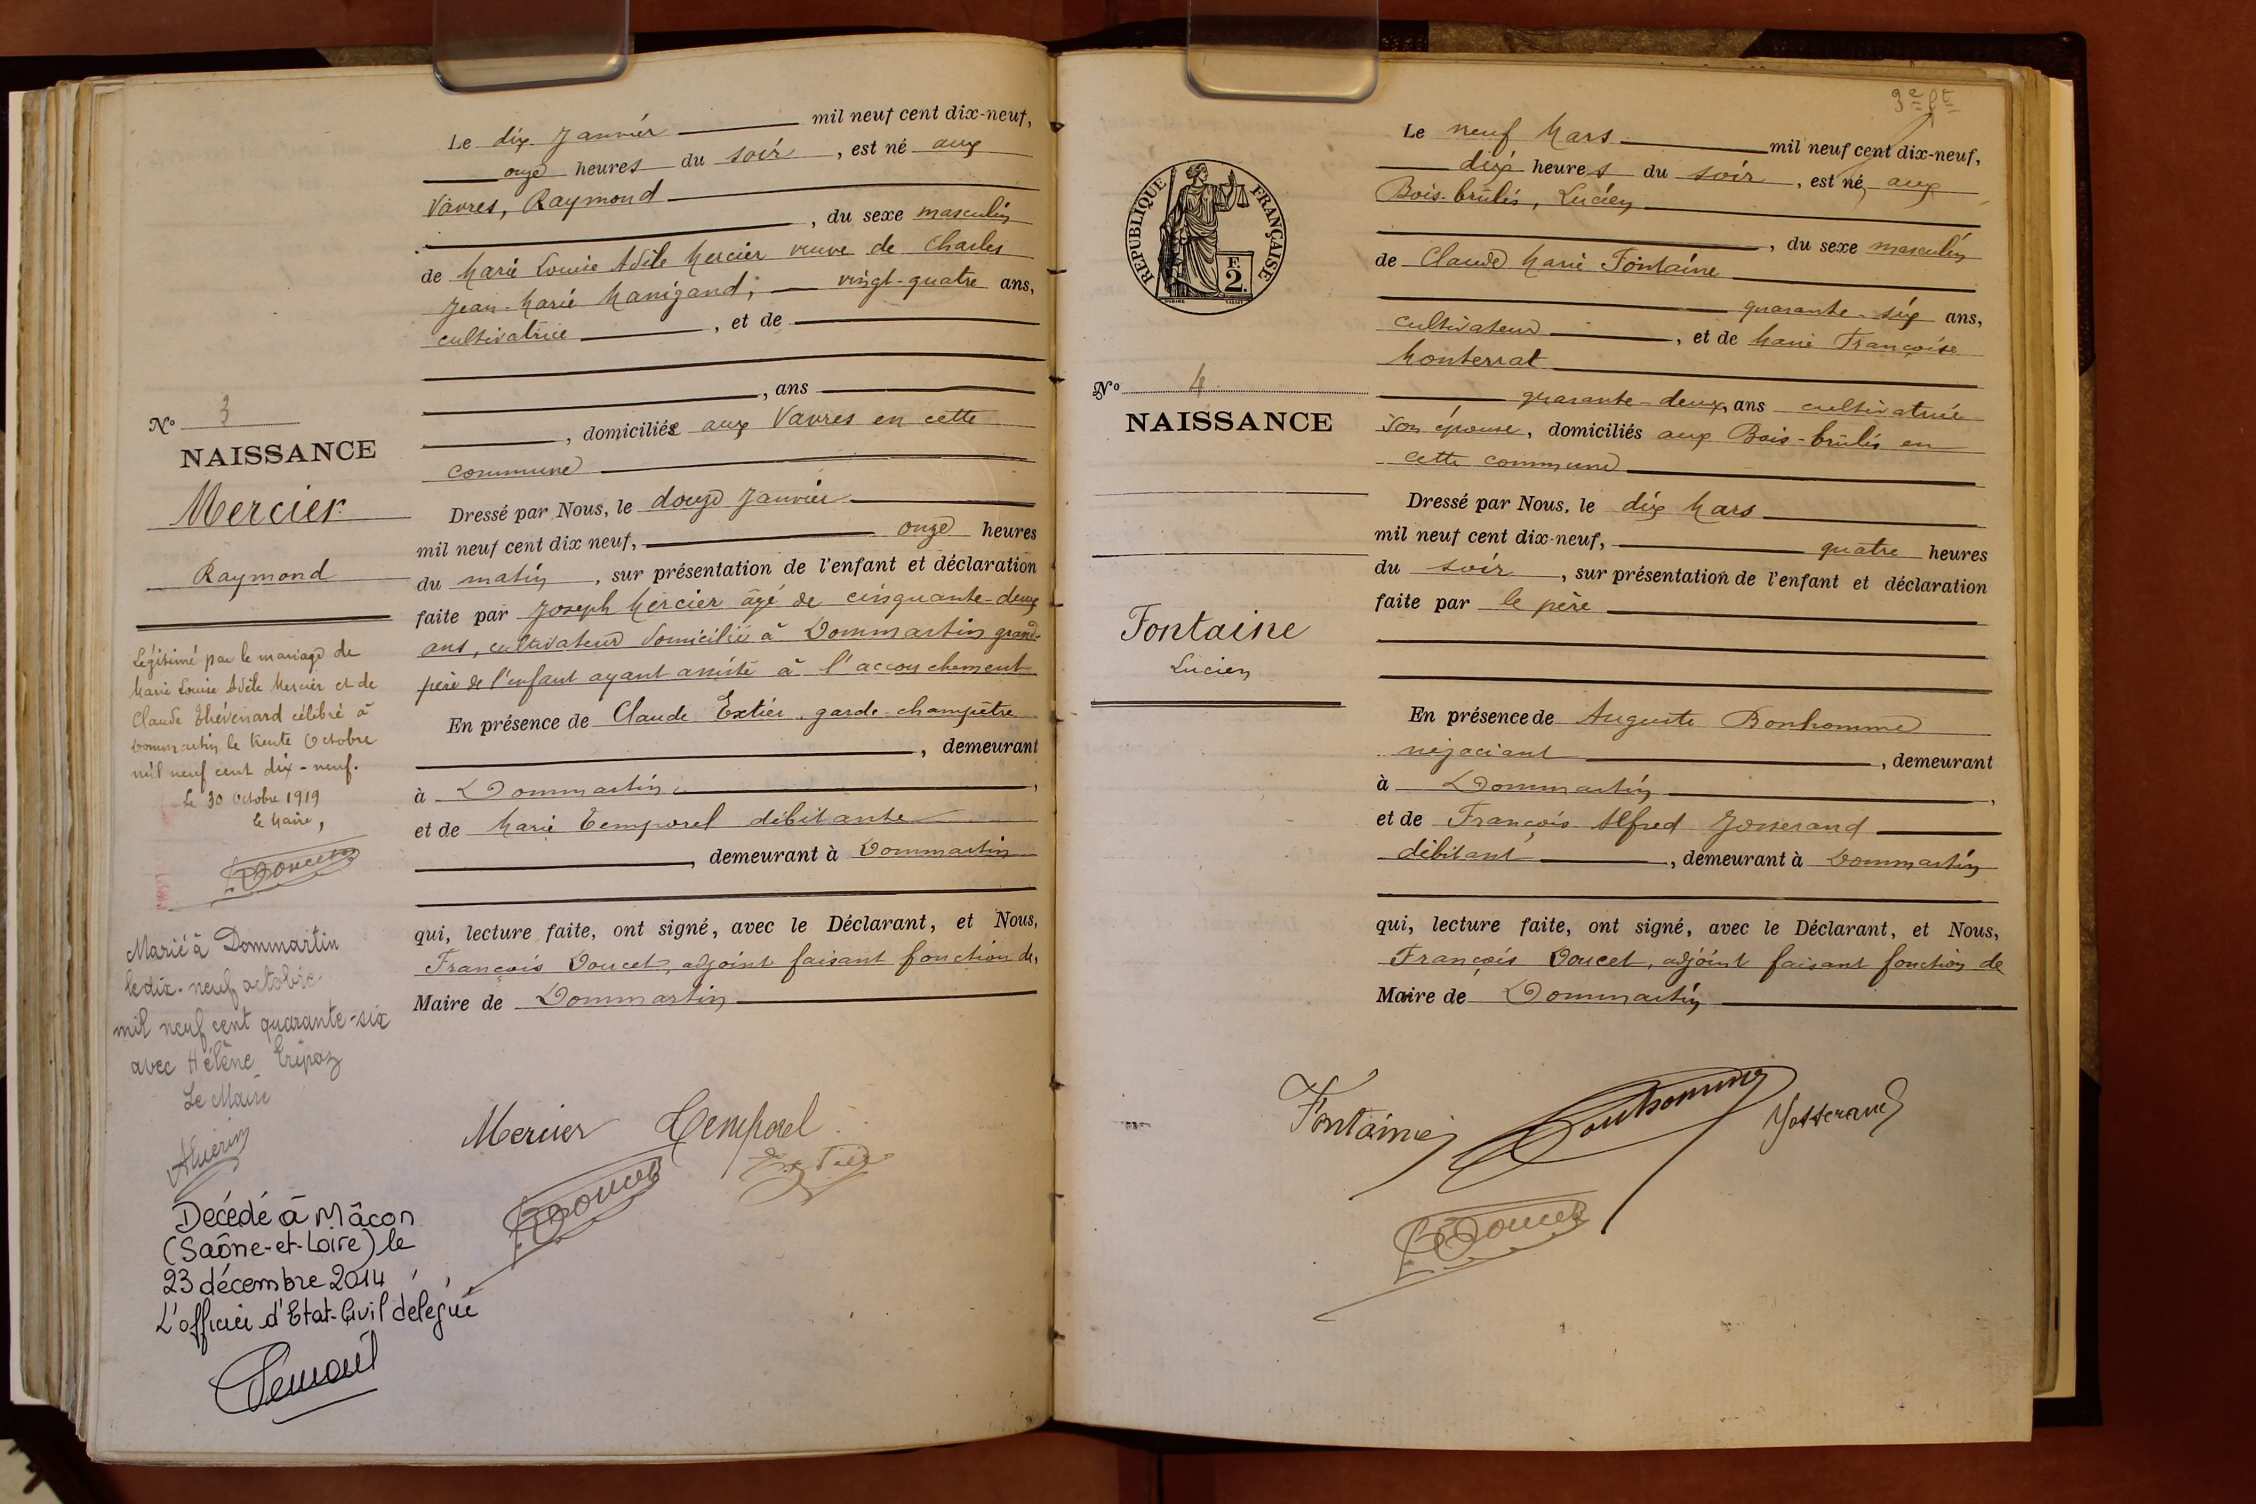 Le dix Janvier mil neuf cent dix-neuf,
onze heures du soir, est né aux
Vavres, Raymond
, du sexe masculin
de Marie Louise Adèle Mercier veuve de Charles
Jean-Marie Manigand, vingt-quatre ans,
cultivatrice, et de
, ans
, domiciliée aux Vavres en cette
commune
Dressé par Nous, le douze Janvier
mil neuf cent dix neuf, onze heures
du matin, sur présentation de l'enfant et déclaration
faite par Joseph Mercier âgé de cinquante-deux
ans, cultivateur domicilié à Dommartin grand-
père de l'enfant ayant assisté à l'accouchement
En présence de Claude Extier, garde-champêtre
, demeurant
à Dommartin,
et de Marie Temporel débitante
, demeurant à Dommartin
qui, lecture faite, ont signé, avec le Déclarant, et Nous,
François Doucet, adjoint faisant fonction de
Maire de Dommartin
Mercier Temporel
Extier
Doucet
No 3
NAISSANCE
Mercier
Raymond
Légitimé par le mariage de
Marie Louise Adèle Mercier et de
Claude Thévenard célébré à
Dommartin le trente Octobre
mil neuf cent dix-neuf.
Le 30 Octobre 1919
le Maire,
Doucet
Marié à Dommartin
le dix-neuf octobre
mil neuf cent quarante-six
avec Hélène Tripoz
Le Maire
Décédé à Mâcon
(Saône-et-Loire) le
23 décembre 2014
L'officier d'Etat-Civil délégué
RÉPUBLIQUE FRANÇAISE
F.
2.
No 4
NAISSANCE
Fontaine
Lucien
Le neuf Mars mil neuf cent dix-neuf,
dix heures du soir, est né aux
Bois-brûlés, Lucien
, du sexe masculin
de Claude Marie Fontaine
quarante-six ans,
cultivateur, et de Marie Françoise
Monterrat
quarante-deux, ans cultivatrice
son épouse, domiciliés aux Bois-brûlés en
cette commune
Dressé par Nous, le dix Mars
mil neuf cent dix-neuf, quatre heures
du soir, sur présentation de l'enfant et déclaration
faite par le père
En présence de Auguste Bonhomme
négociant, demeurant
à Dommartin,
et de François Alfred Josserand
débitant, demeurant à Dommartin
qui, lecture faite, ont signé, avec le Déclarant, et Nous,
François Doucet, adjoint faisant fonction de
Maire de Dommartin
Fontaine Bonhomme Josserand
Doucet